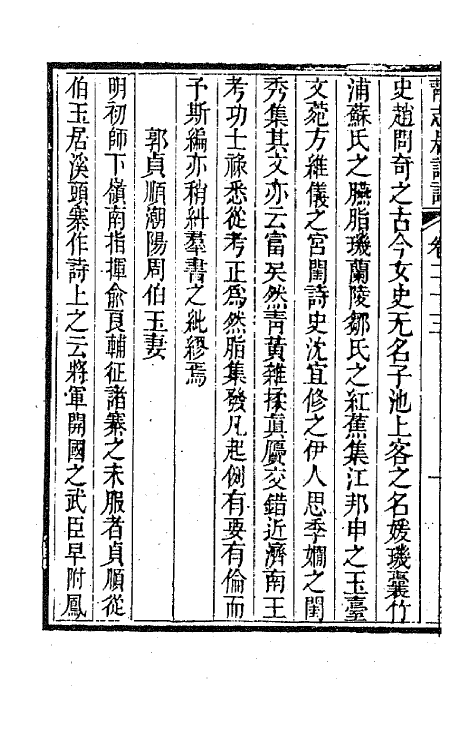 史趙問奇之古今女史无名子池上客之名媛璣囊竹
浦蘇氏之臙脂璣蘭陵鄒氏之紅蕉集江邦申之玉臺
文苑方維儀之宮閨詩史沈宜修之伊人思季嫺之閨
秀集其文亦云富矣然靑黃雜揉眞贗交錯近濟南王
考功士祿悉從考正爲然脂集發凡起例有要有倫而
予斯編亦稍糾羣書之紕繆焉
郭貞順潮陽周伯玉妻
明初師下嶺南指揮俞良輔征諸寨之未服者貞順從
伯玉居溪頭寨作詩上之云將軍開國之武臣早附鳳